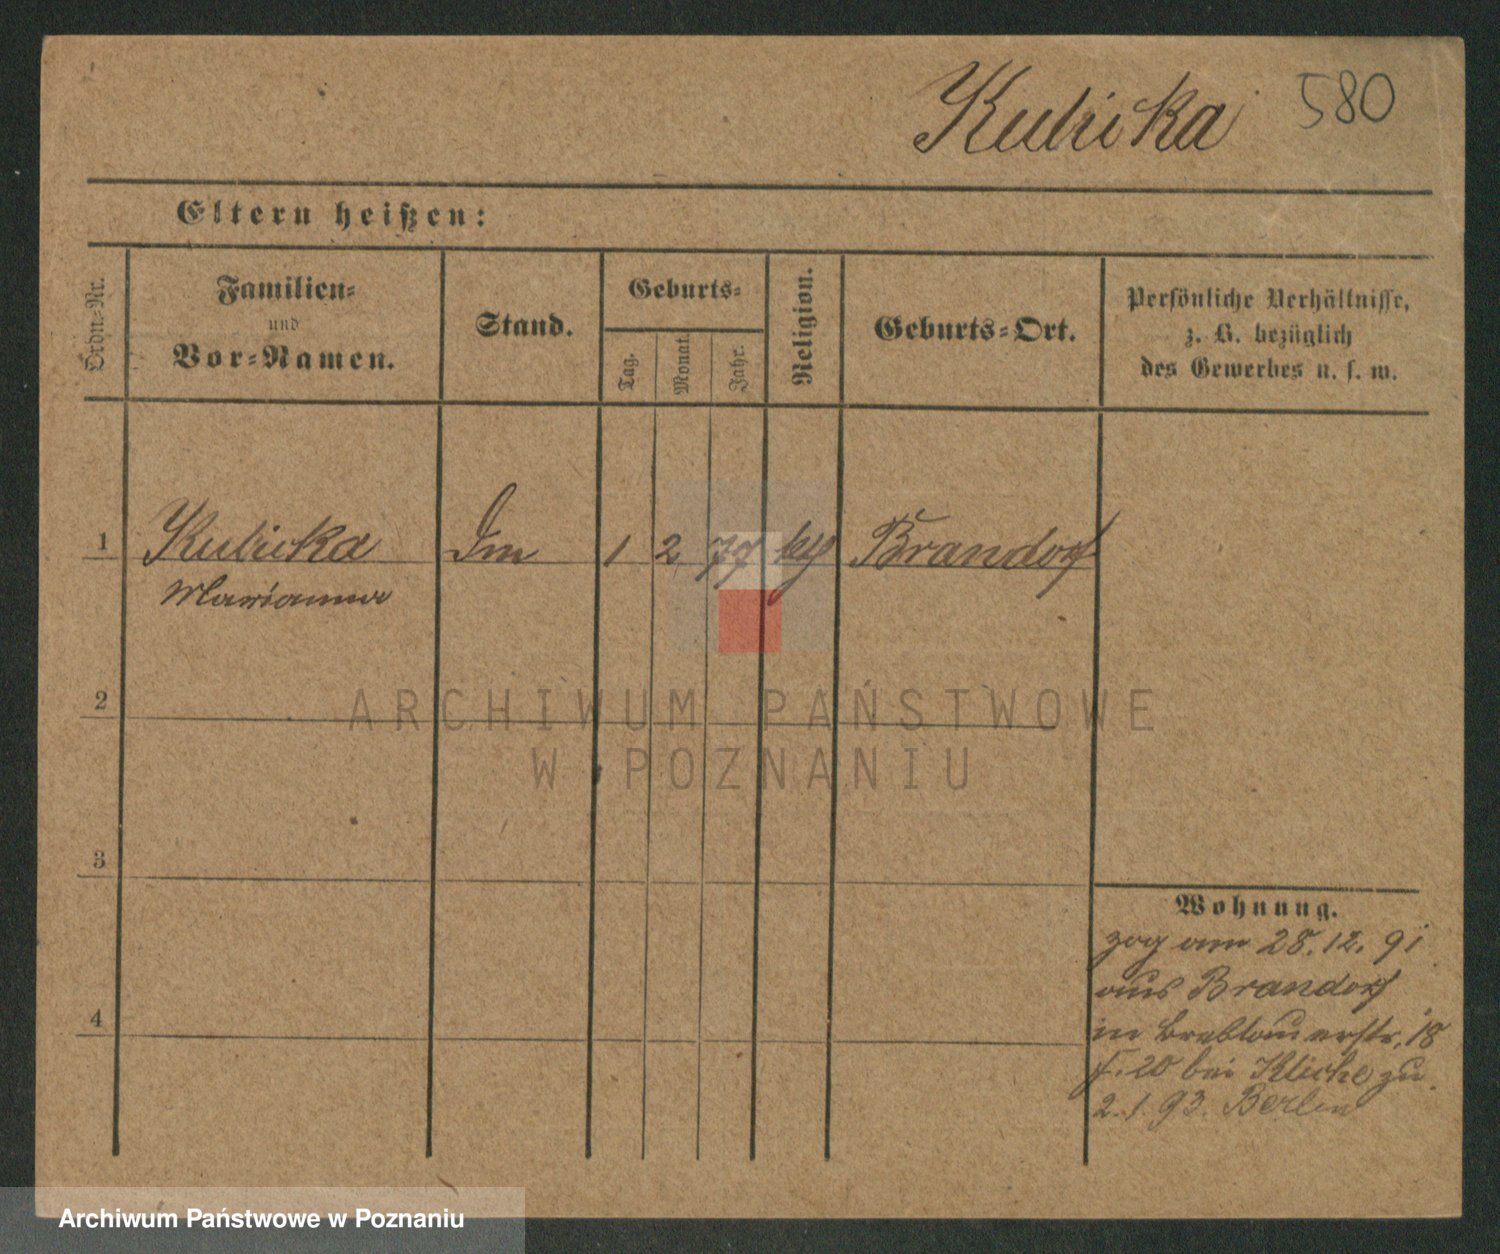 Kubicka 580
Eltern heißen:
Ordn.-Nr.
Familien-
und
Vor-Namen.
Stand.
Geburts-
Tag.
Monat.
Jahr.
Religion.
Geburts-Ort.
Persönliche Verhältnisse,
z. B. bezüglich
des Gewerbes u. s. w.
1 Kubicka 1 2 77 Brandorf
Marianna
2
3
4
Wohnung.
zog am 28. 12. 91
aus Brandorf
in Breslauerstr. 18
20 bei Klicke zu
2. 1. 93. Berlin
ARCHIWUM PAŃSTWOWE
W POZNANIU
Archiwum Państwowe w Poznaniu